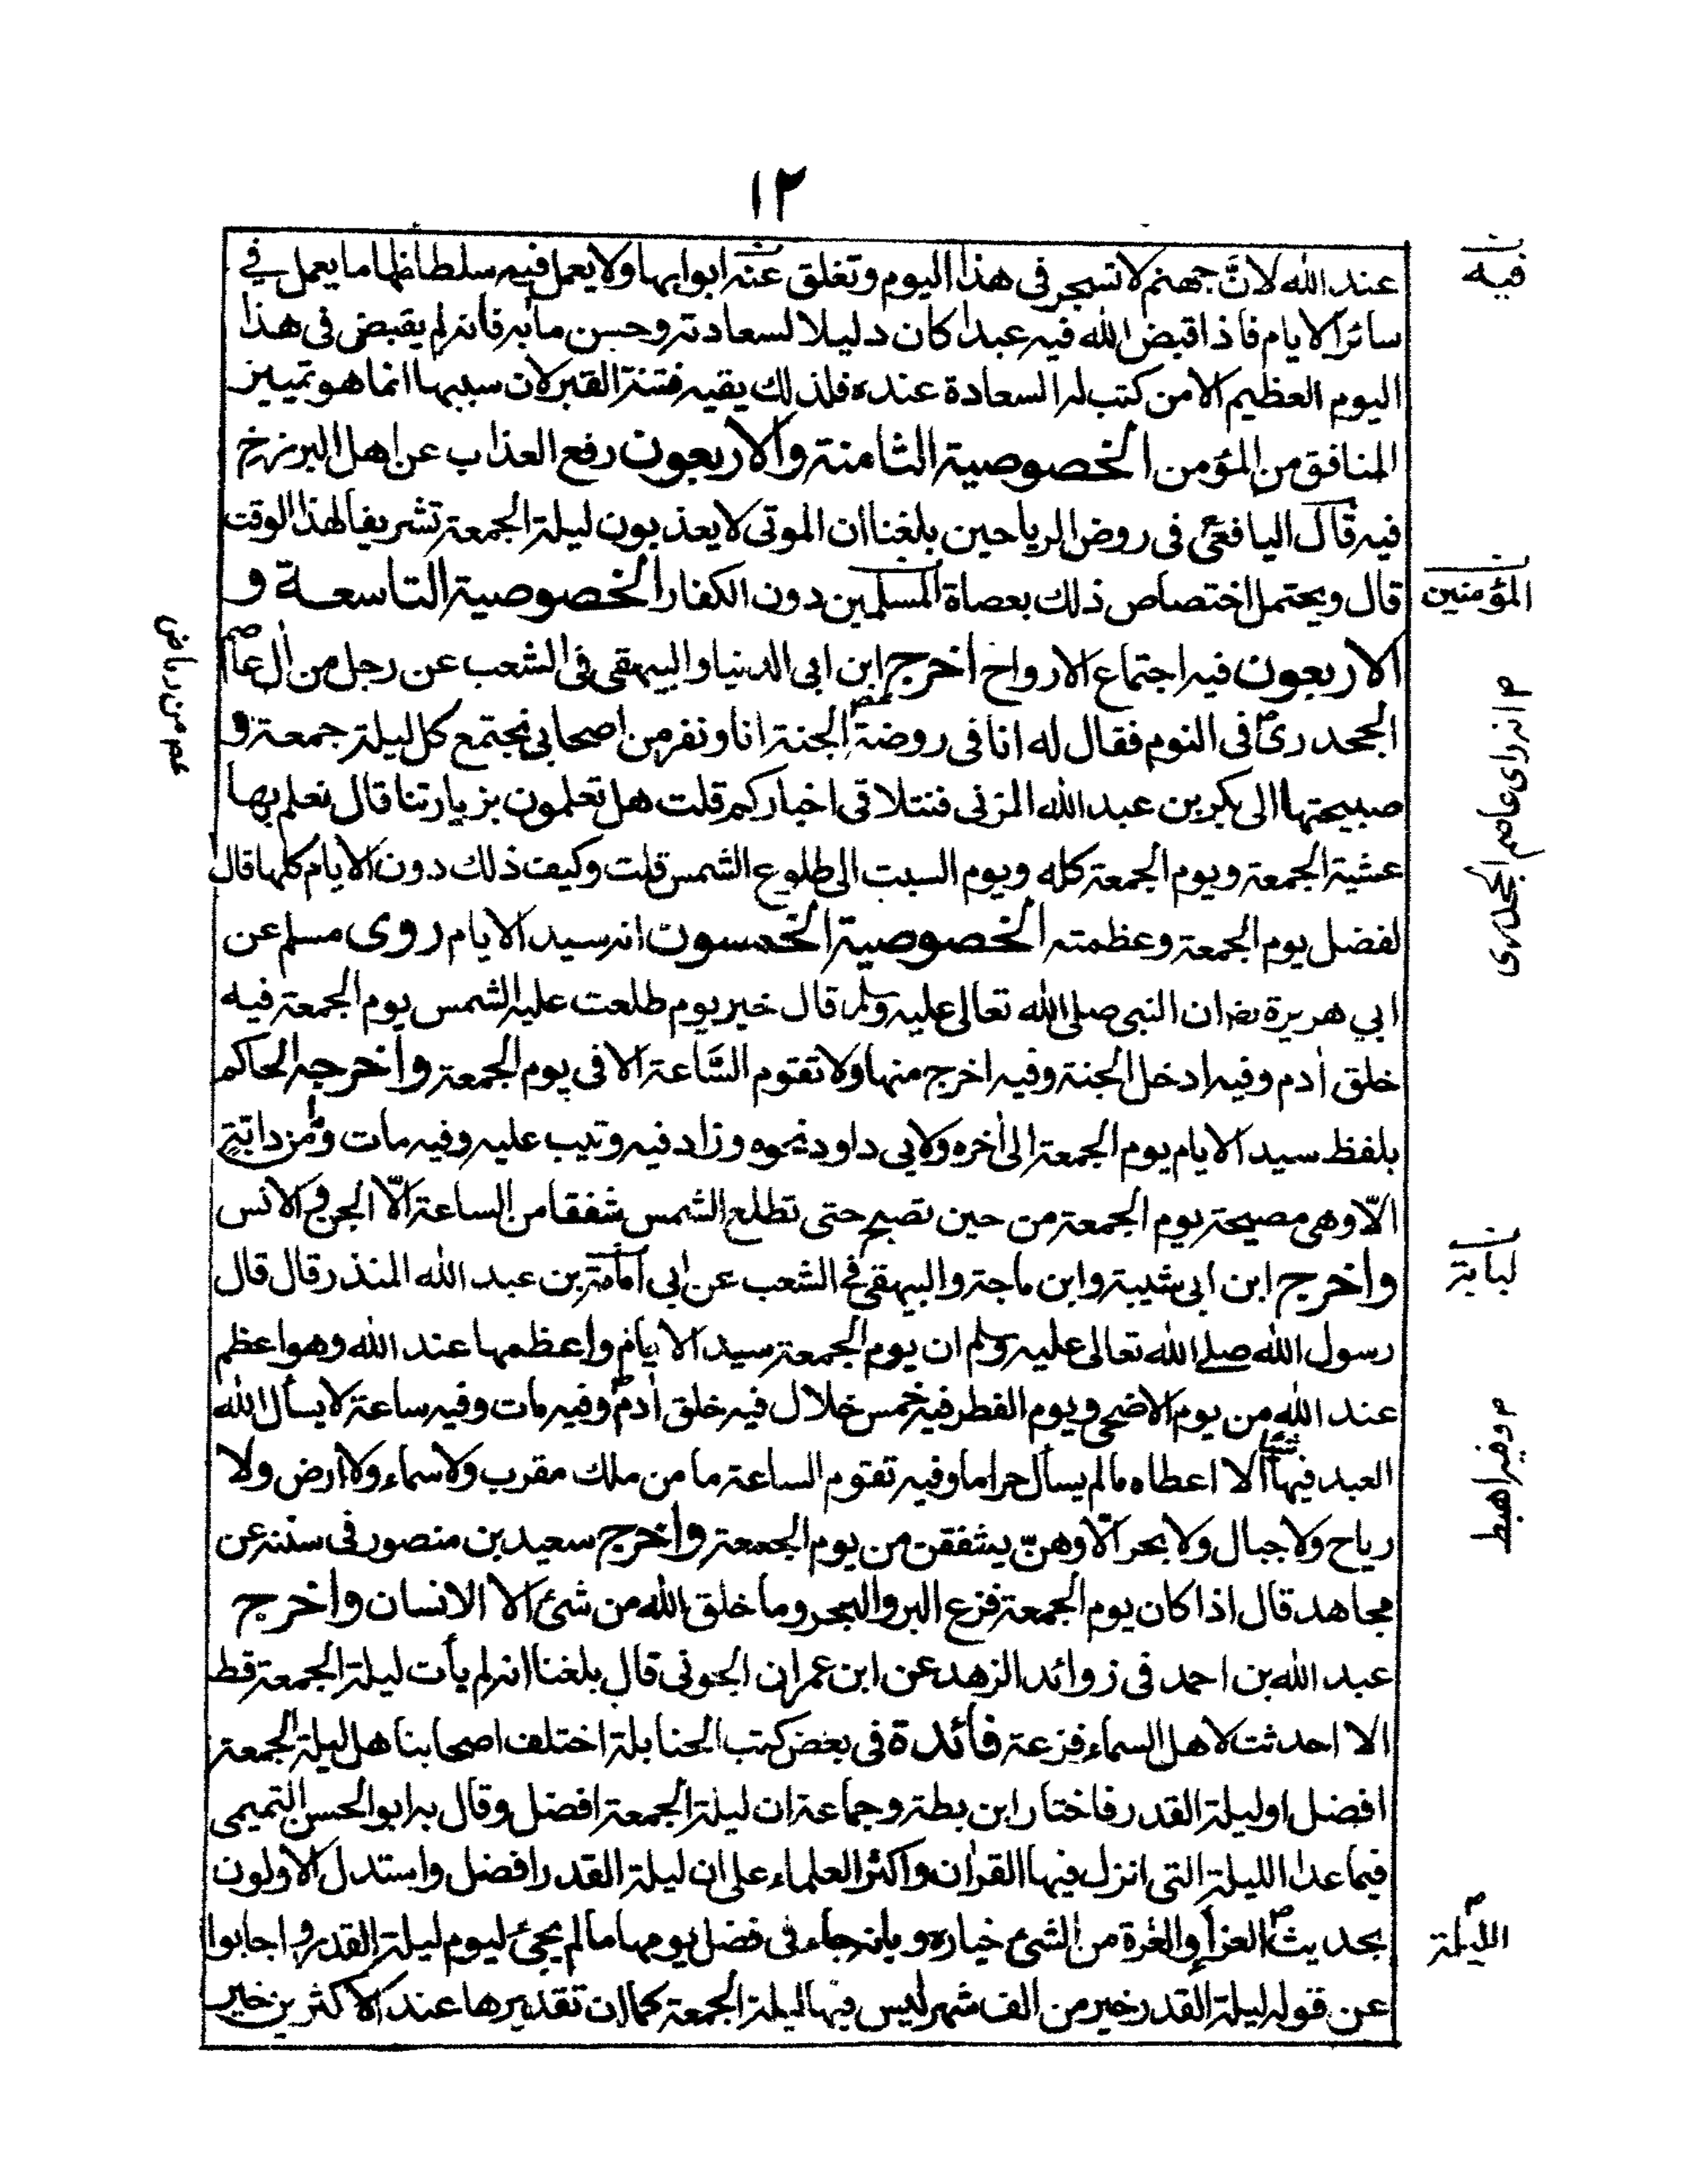 ١٢
عند الله لانَّ جهنم لا تسجر فى هذا اليوم وتغلق عنه ابوابها ولا يعمل فيه سلطانها ما يعمل في
سائر الايام فاذا قبض الله فيه عبدا كان دليلا لسعادته وحسن مأبه فانه لم يقبض فى هذا
اليوم العظيم الا من كتب له السعادة عنده فلذلك يقيه فتنة القبر لان سببها انما هو تمييز
المنافق من المؤمن الخصوصية الثامنة والاربعون رفع العذاب عن اهل البرزخ
فيه قال اليافعى فى روض الرياحين بلغنا ان الموتى لا يعذبون ليلة الجمعة تشريفا لهذا الوقت
قال ويحتمل اختصاص ذلك بعصاة المسلمين دون الكفار الخصوصية التاسعة و
الاربعون فيه اجتماع الارواح اخرج ابن ابى الدنيا والبيهقى فى الشعب عن رجل من اٰل عاصم
الجحدرى فى النوم فقال له انا فى روضة الجنة انا ونفر من اصحابى نجتمع كل ليلة جمعة و
صبيحتها الى بكر بن عبد الله المزنى فنتلاقى اخباركم قلت هل تعلمون بزيارتنا قال نعلم بها
عشية الجمعة ويوم الجمعة كله ويوم السبت الى طلوع الشمس قلت وكيف ذلك دون الايام كلها قال
لفضل يوم الجمعة وعظمته الخصوصية الخمسون انه سيد الايام روى مسلم عن
ابي هريرة رضى ان النبى صلى الله تعالى عليه وسلم قال خير يوم طلعت عليه الشمس يوم الجمعة فيه
خلق اٰدم وفيه ادخل الجنة وفيه اخرج منها ولا تقوم السَّاعة الا فى يوم الجمعة واخرجه الحاكم
بلفظ سيد الايام يوم الجمعة الى اٰخره ولابى داود نحوه وزاد فيه وتيب عليه وفيه مات وما من دابّةٍ
الّا وهى مصيحة يوم الجمعة من حين تصبح حتى تطلع الشمس شفقا من الساعة الّا الجن والانس
واخرج ابن ابى شيبة وابن ماجة والبيهقى فى الشعب عن ابى أمامة بن عبد الله المنذر قال قال
رسول الله صلى الله تعالى عليه وسلم ان يوم الجمعة سيد الايام واعظمها عند الله وهو اعظم
عند الله من يوم الاضحى ويوم الفطر فيه خمس خلال فيه خلق اٰدم وفيه مات وفيه ساعة لا يسأل الله
العبد فيها شيئا الا اعطاه ما لم يسأل حراما وفيه تقوم الساعة ما من ملك مقرب ولا سماء ولا ارض ولا
رياح ولا جبال ولا بحر الّا وهنّ يشفقن من يوم الجمعة واخرج سعيد بن منصور فى سننه عن
مجاهد قال اذا كان يوم الجمعة فزع البر والبحر وما خلق الله من شئ الا الانسان واخرج
عبد الله بن احمد فى زوائد الزهد عن ابن عمران الجونى قال بلغنا انه لم يأت ليلة الجمعة قط
الا احدثت لاهل السماء فزعة فائدة فى بعض كتب الحنابلة اختلف اصحابنا هل ليلة الجمعة
افضل او ليلة القدر فاختار ابن بطة وجماعة ان ليلة الجمعة افضل وقال به ابو الحسن التميمى
فيما عدا الليلة التى انزل فيها القراٰن واكثر العلماء على ان ليلة القدر افضل واستدل الاولون
بحديث الغرا والغرة من الشئ خياره وبانه جاء فى فضل يومها ما لم يجئ ليوم ليلة القدر واجابوا
عن قوله ليلة القدر خير من الف شهر ليس فيها ليلة الجمعة كما ان تقديرها عند الاكثرين خير
فيه
المؤمنين
م انه راى عاصم الجحدرى
لبابة
م وفيه اهبط
الليلة
عم من رياض